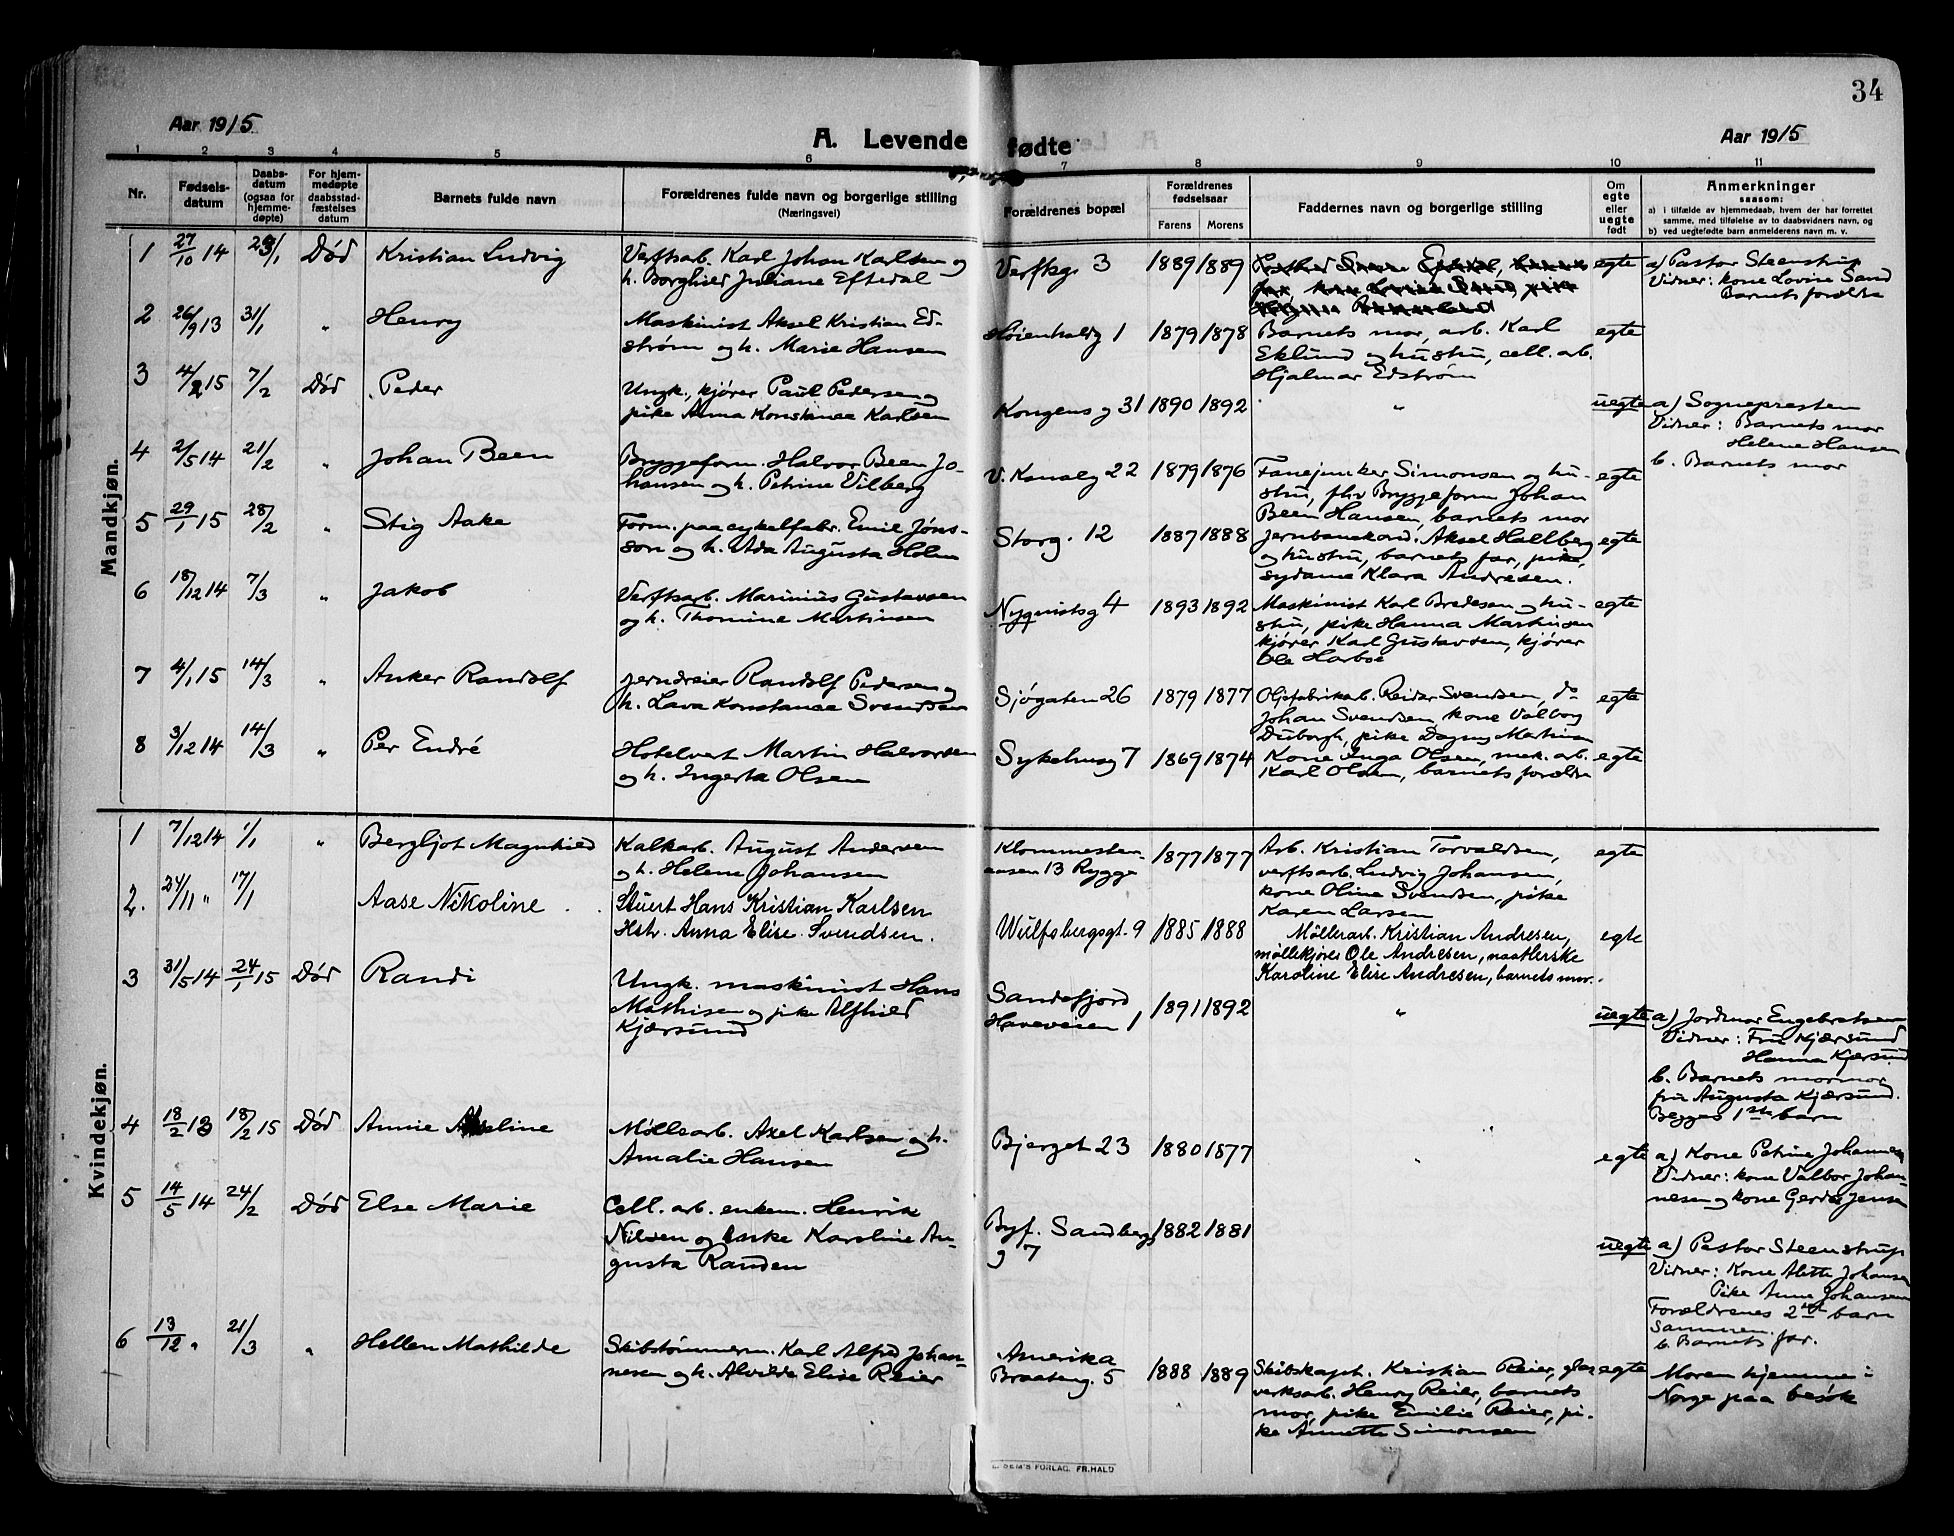 34
Aar 1915
A. Levende fødte
Aar 1915
1 2 3 4 5 6 7 8 9 10 11
Nr.
Fødsels-
datum
Daabs-
datum
(ogsaa for
hjemme-
døpte)
For hjem-
medøpte
daabsstad-
fæstelses
datum
Barnets fulde navn
Forældrenes fulde navn og borgerlige stilling
(Næringsvei)
Forældrenes bopæl
Forældrenes
fødselsaar
Farens Morens
Faddernes navn og borgerlige stilling
Om
egte
eller
uegte
født
Anmerkninger
saasom:
a) i tilfælde av hjemmedaab, hvem der har forrettet
samme, med tilføielse av to daabsvidners navn, og
b) ved uegtefødte barn anmelderens navn m. v.
Mandkjøn.
1 27/10 14 Død Kristian Ludvig
Verftsarb. Karl Johan Karlsen og
h. Borghild Juliane Eftedal
Verftsg. 3 1889 1889
egte
a) Pastor Steenstrup
Vidner: kone Lovine Sand
Barnets forældre
2 26/9 13 31/1 " Henry
Maskinist Aksel Kristian Ed-
strøm og h. Marie Hansen
Høienhaldg 1 1879 1878
Barnets mor, arb. Karl
Eklund og hustru, cell. arb.
Hjalmar Edstrøm
egte
3 4/2 15 7/2 Død Peder
Ungk., kjører Paul Pedersen og
pike Anna Konstance Karlsen
Kongens g 31 1890 1892
"
uegte
a) Sognepresten
Vidner: Barnets mor
Helene Hansen
b. Barnets mor
4 2/5 14 21/2 " Johan Been
Bryggeform. Halvor Been Jo-
hansen og h. Petrine Vilberg
V. Kanalg 22 1879 1876
Fanejunker Simonsen og hu-
stru, fhv Bryggeform Johan
Been Hansen, barnets mor
egte
5 29/1 15 28/2 " Stig Aake
Form. paa cykelfabr. Emil Jøns-
son og h. Ada Augusta Holm
Storg. 12 1887 1888
Jernbanekond. Aksel Hallberg
og hustru, barnets far, pike,
sydame Klara Andresen.
egte
6 18/12 14 7/3 " Jakob
Verftsarb. Marinius Gustavsen
og h. Thomine Martinsen
Nyquistsg 4 1893 1892
Maskinist Karl Bredesen og hu-
stru, pike Hanna Martinsen
kjører Karl Gustavsen, kjører
Ole Harboe
egte
7 4/1 15 14/3 " Anker Randolf
Jerndreier Randolf Pedersen og
h. Lava Konstance Svendsen
Sjøgaten 26 1879 1877
Oljefabrikarb. Reidar Svendsen, do
Johan Svendsen, kone Valborg
Duborgh, pike Dagny Martinsen
egte
8 3/12 14 14/3 " Per Endré
Hotelvert Martin Halvorsen
og h. Ingerta Olsen
Sykehusg 7 1869 1874
Kone Inga Olsen, mek. arb.
Karl Olsen, barnets forældre
egte
Kvindekjøn.
1 7/12 14 1/1 " Bergljot Magnhild
Kalkarb. August Andersen
og h. Helene Johansen
Klommesten-
aasen 13 Rygge 1877 1877
Arb. Kristian Torvaldsen,
verftsarb. Ludvig Johansen,
kone Oline Svendsen, pike
Karen Larsen
egte
2. 24/11 " 17/1 Aase Nikoline
Stuert Hans Kristian Karlsen
Hstr. Anna Elise Svendsen.
Wulfsbergsgt. 9 1885 1888
Møllerarb. Kristian Andresen,
møllekjører Ole Andresen, naatlerske
Karoline Elise Andresen, barnets mor.
egte
3 31/5 14 24/1 15 Død Randi
Ungk. maskinist Hans
Mathisen og pike Alfhild
Kjærsund
Sandefjord
Haveveien 1 1891 1892
"
uegte
a) Jordmor Engebretsen
Vidner: Fru Kjærsund
Hanna Kjærsund
b. Barnets mormor
fru Augusta Kjærsund.
Begges 1ste barn
4 18/2 13 18/2 15 Død Annie
Møllearb. Axel Karlsen og h.
Amalie Hansen
Bjerget 23 1880 1877
"
egte
a) Kone Petrine Johannesen
Vidner: kone Valbor Johan-
nesen og kone Gerda Jensen
5 14/5 14 24/2 Død Else Marie
Cell. arb. enkem. Henrik
Nilsen og enke Karoline Au-
gusta Randen
Byf. Sandberg
g 7 1882 1881
uegte
a) Pastor Steenstrup
Vidner: Kone Alette Johansen
Pike Anna Johansen
Forældrenes 2net barn
sammen.
b. Barnets far.
6 13/12 " 21/3 " Hellen Mathilde
Skibstømmerm. Karl Alfred Johan-
nesen og h. Alvilde Elise Reier
Amerika
Braateng. 5 1888 1889
Skibskapt. Kristian Reier, glas-
verksarb. Henry Reier, barnets
mor, pike Emilie Reier, pi-
ke Annette Simonsen
egte
Moren hjemme i
Norge paa besøk
SEM'S FORLAG, FR.HALD